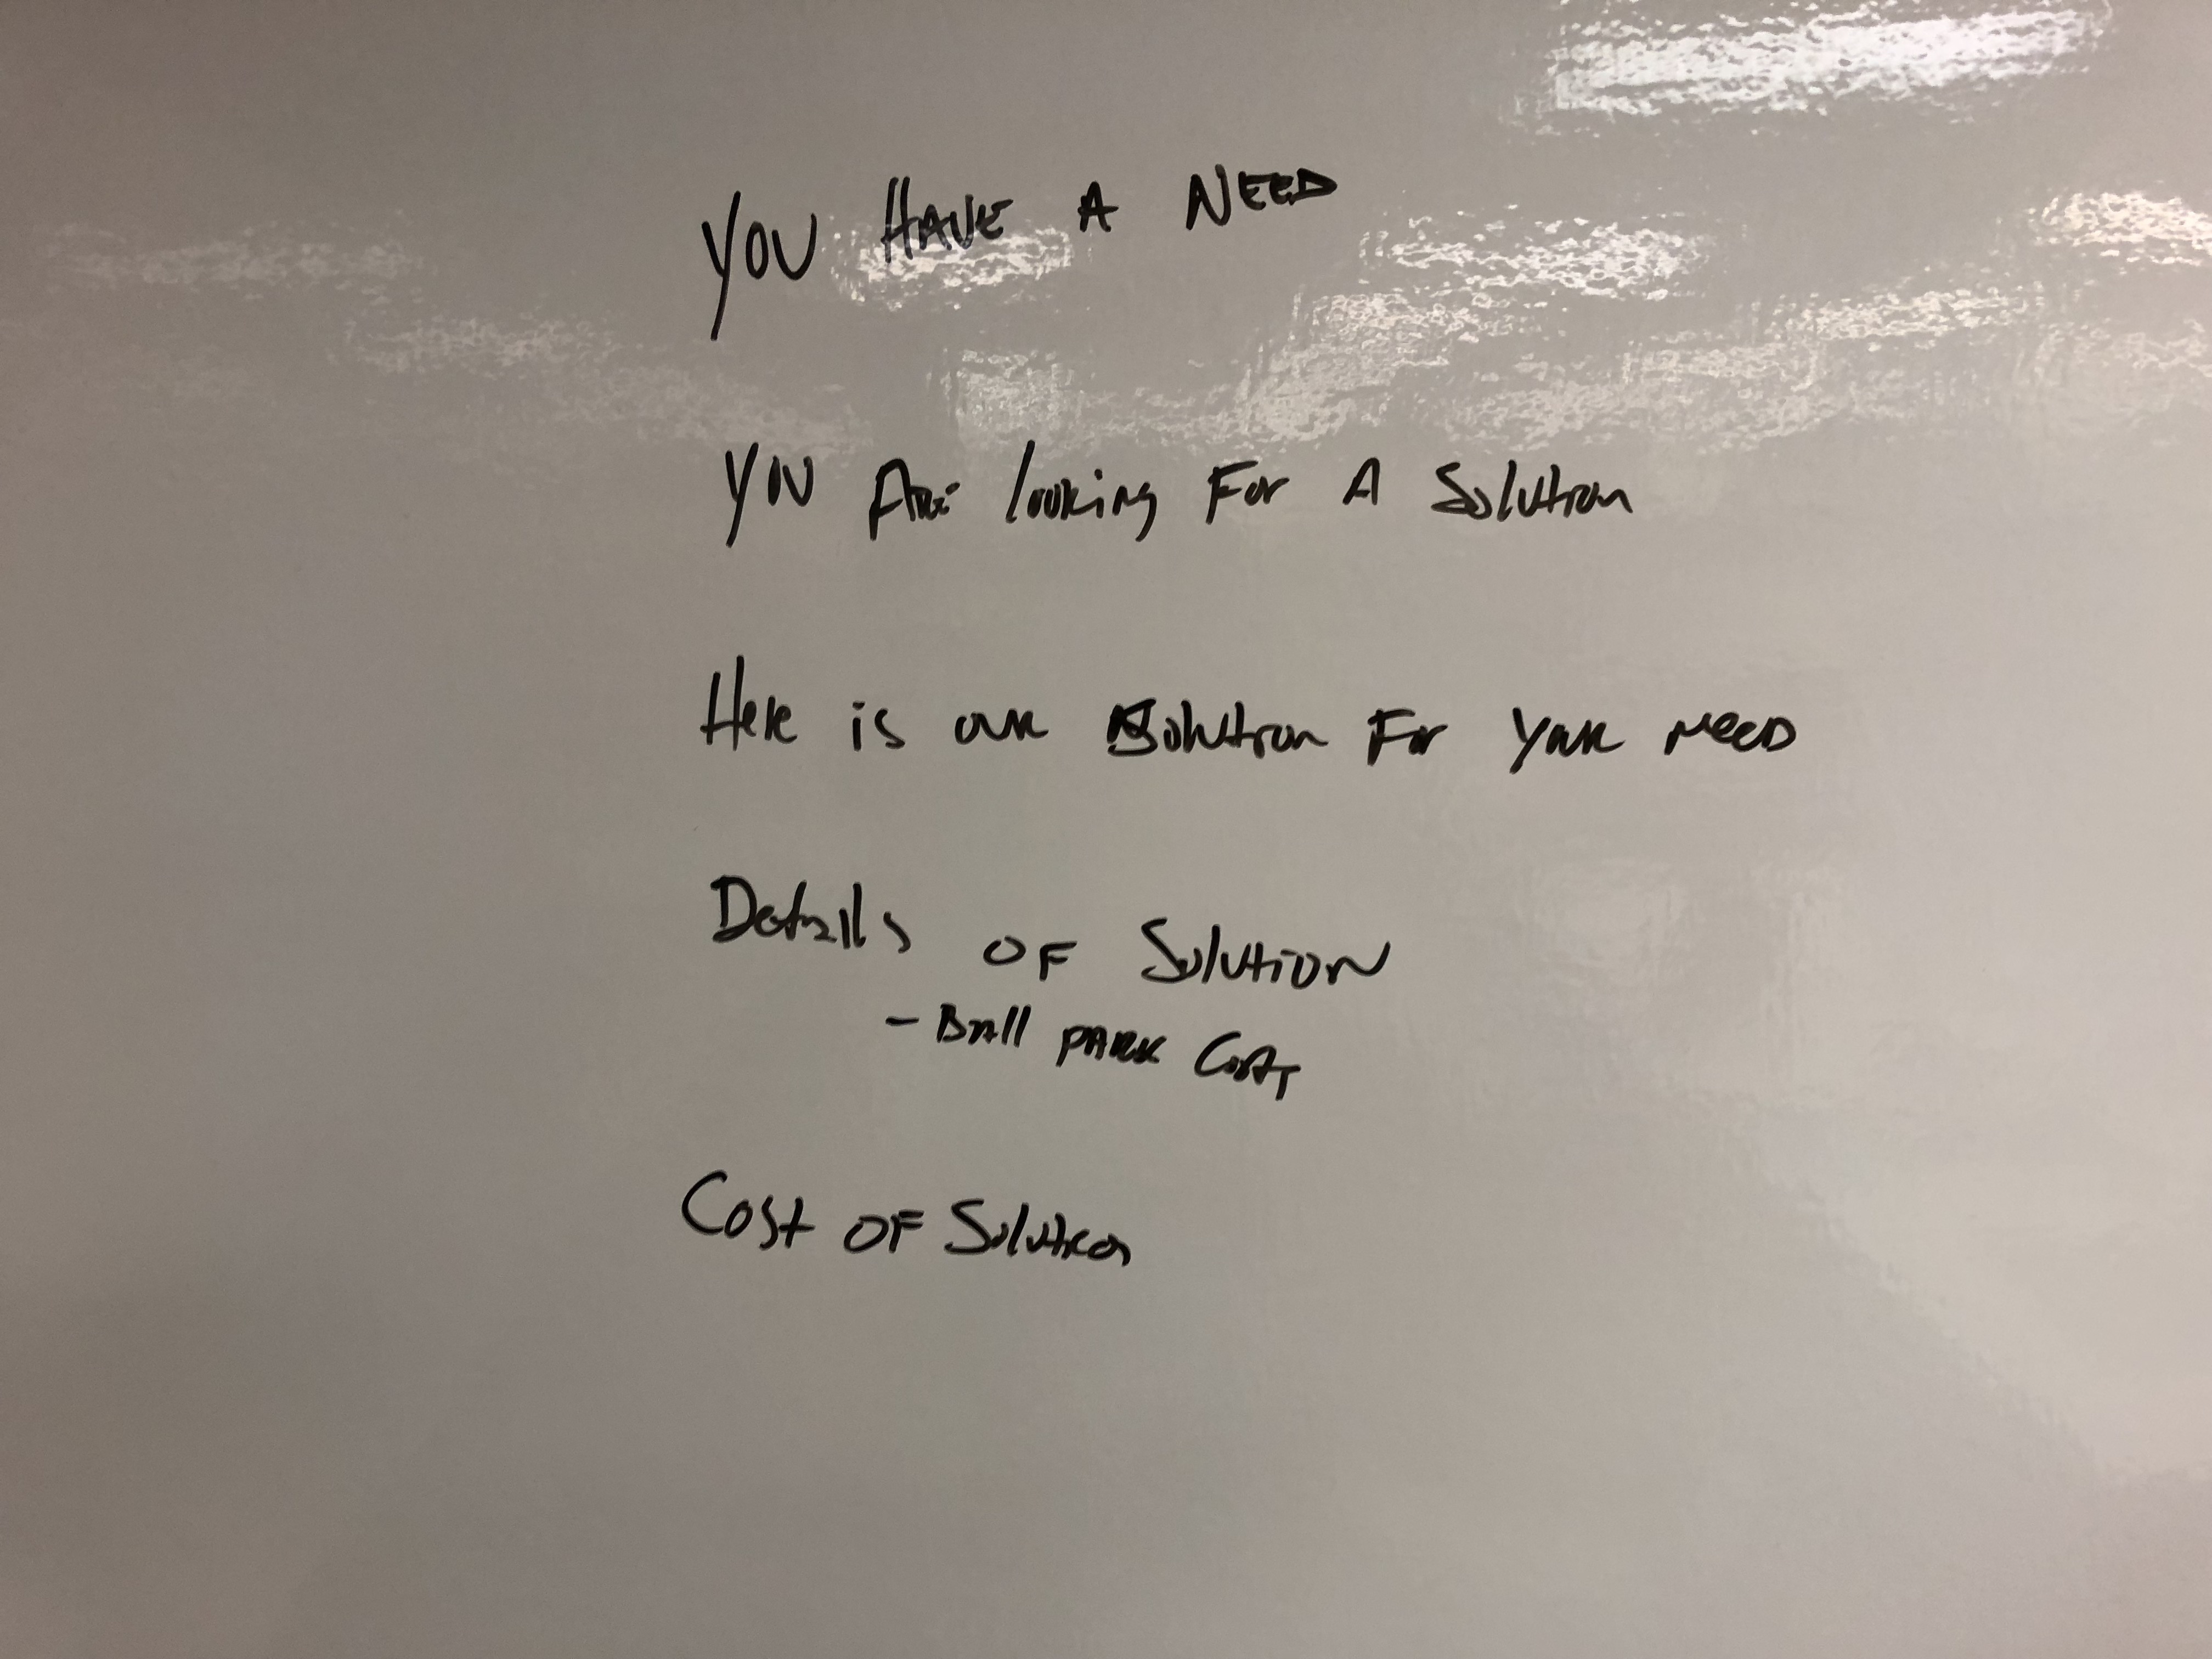 YOU HAVE A NEED
YOU ARE looking For A Solution
Here is our Solution For your need
Details OF Solution
- Ball PARK COST
Cost OF Solution